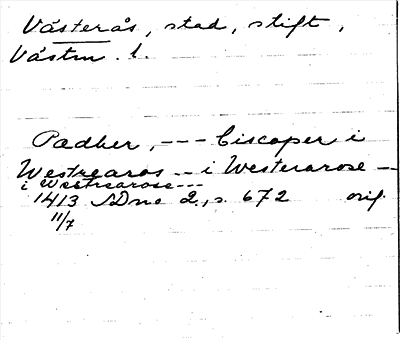 Västerås, stad, stift,
Västm. l.
Padher, --- biscoper i
Westrearos -- i Westerarose --
i Westrearose ---
1413 SDns 2, s. 672 orig.
11/7